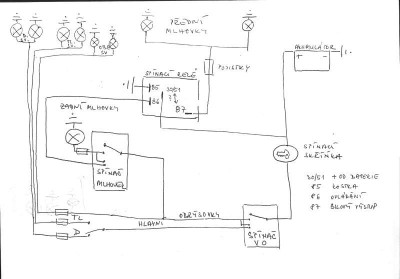 PŘEDNÍ
MLHOVKY
AKUMULÁTOR
+ -
SPÍNACÍ RELÉ
POJISTKY
85
30/51
86
87
ZADNÍ
MLHOVKY
SPÍNAČ
MLHOVEK
SPÍNACÍ
SKŘÍŇKA
30/51 + OD BATERIE
85 KOSTRA
86 OVLÁDÁNÍ
87 BÍLÝ VÝSTUP
OBRYSOVKY
TL
HLAVNÍ
D
SPÍNAČ
VO